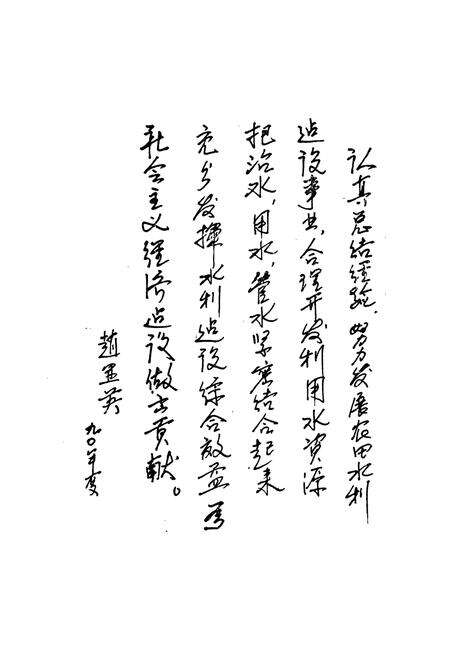 认真总结经验，努力发展农田水利
建设事业，合理开发利用水資源
把治水，用水，管水紧密结合起来
充分发揮水利建设综合效益，為
社会主义經济建设做出贡献。
趙玉英
九〇年度